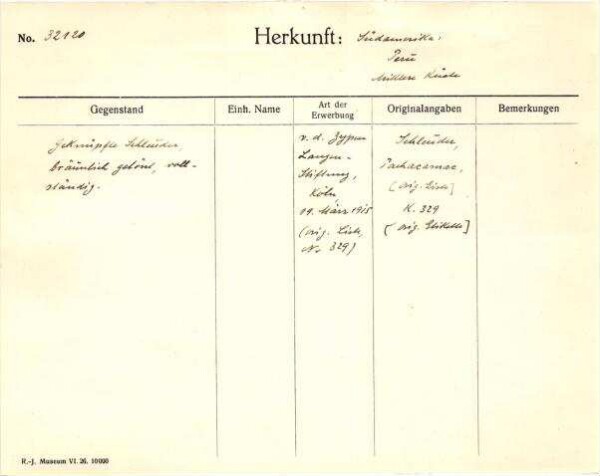 No. 32120
Herkunft: Südamerika:
Peru
Mittlere Küste
Gegenstand
Einh. Name
Art der
Erwerbung
Originalangaben
Bemerkungen
Geknüpfte Schleuder,
bräunlich getönt, voll-
ständig.
v. d. Zypen
Langen-
Stiftung,
Köln
09. März 1915
(orig. Liste,
No 329)
Schleuder,
Pachacamac,
[orig. Liste]
K. 329
[orig. Etikette]
R.-J. Museum VI. 26. 10000